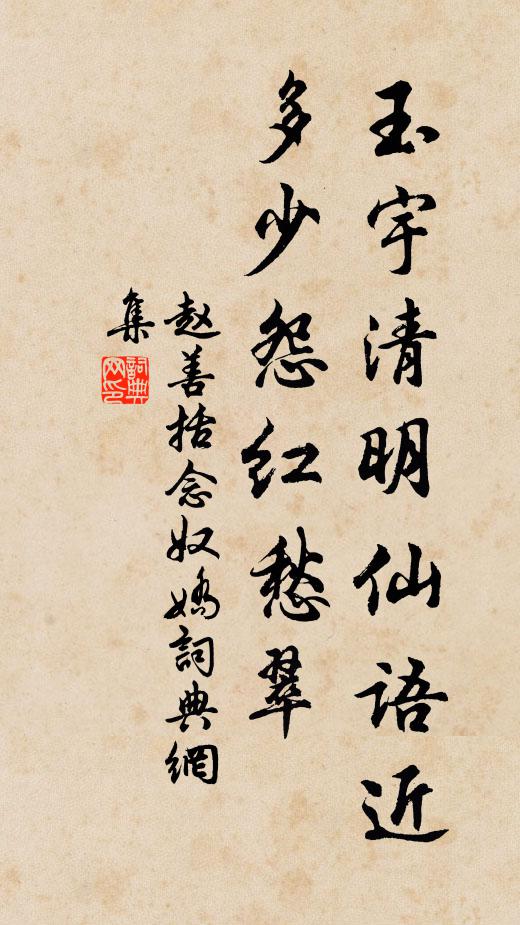 玉宇清明仙语近
多少怨红愁翠
赵善括念奴娇詞典網
集
詞典
网印